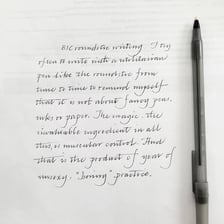 BIC roundstic writing. I try
often to write with a utilitarian
pen like the roundstic from
time to time to remind myself
that it is not about fancy pens,
inks or paper. The magic, the
invaluable ingredient in all
this, is muscular control. And
that is the product of year of
unsexy, "boring" practice.